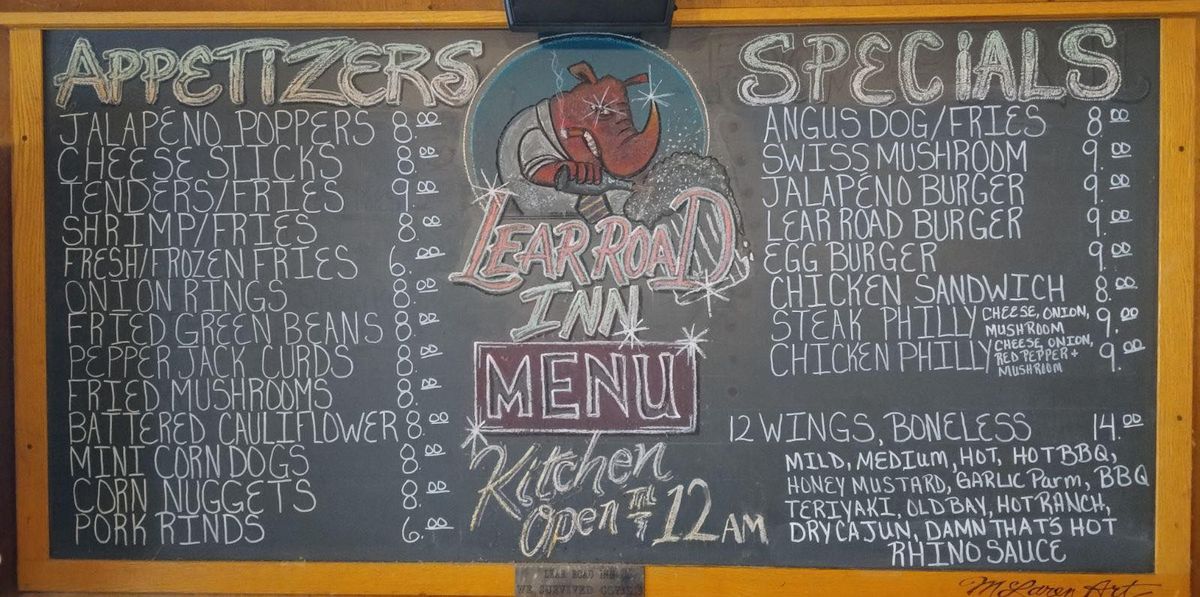 APPETIZERS
JALAPEÑO POPPERS 8.00
CHEESE STICKS 8.00
TENDERS/FRIES 9.00
SHRIMP/FRIES 8.00
FRESH/FROZEN FRIES 6.00
ONION RINGS 8.00
FRIED GREEN BEANS 8.00
PEPPER JACK CURDS 8.00
FRIED MUSHROOMS 8.00
BATTERED CAULIFLOWER 8.00
MINI CORN DOGS 8.00
CORN NUGGETS 8.00
PORK RINDS 6.00
LEAR ROAD
INN
MENU
Kitchen
Open TILL 12 AM
SPECIALS
ANGUS DOG/FRIES 8.00
SWISS MUSHROOM 9.00
JALAPEÑO BURGER 9.00
LEAR ROAD BURGER 9.00
EGG BURGER 9.00
CHICKEN SANDWICH 8.00
STEAK PHILLY CHEESE, ONION, 9.00
MUSHROOM
CHICKEN PHILLY CHEESE, ONION, 9.00
RED PEPPER +
MUSHROOM
12 WINGS, BONELESS 14.00
MILD, MEDIUM, HOT, HOT BBQ,
HONEY MUSTARD, GARLIC Parm, BBQ
TERIYAKI, OLD BAY, HOT RANCH,
DRY CAJUN, DAMN THAT'S HOT
RHINO SAUCE
LEAR ROAD INN
WE SURVIVED
McLaren Art